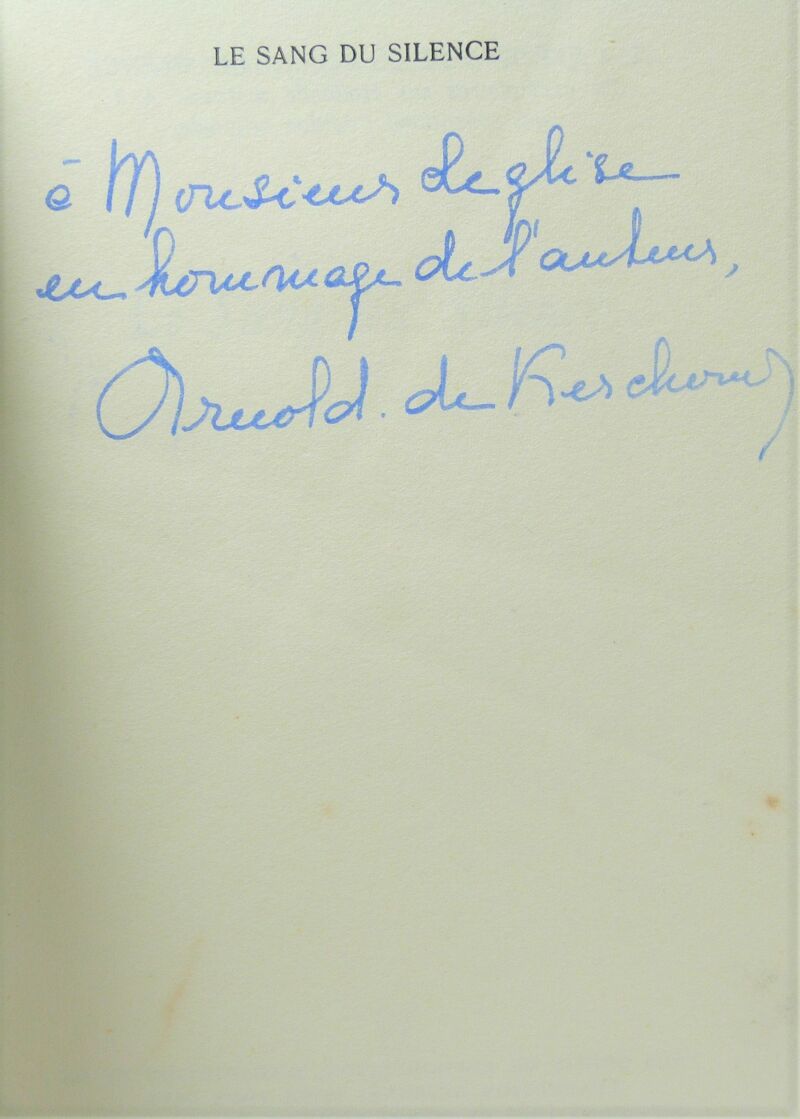 LE SANG DU SILENCE
à Monsieur Deglise
en hommage de l'auteur,
Arnold. de Kerchove